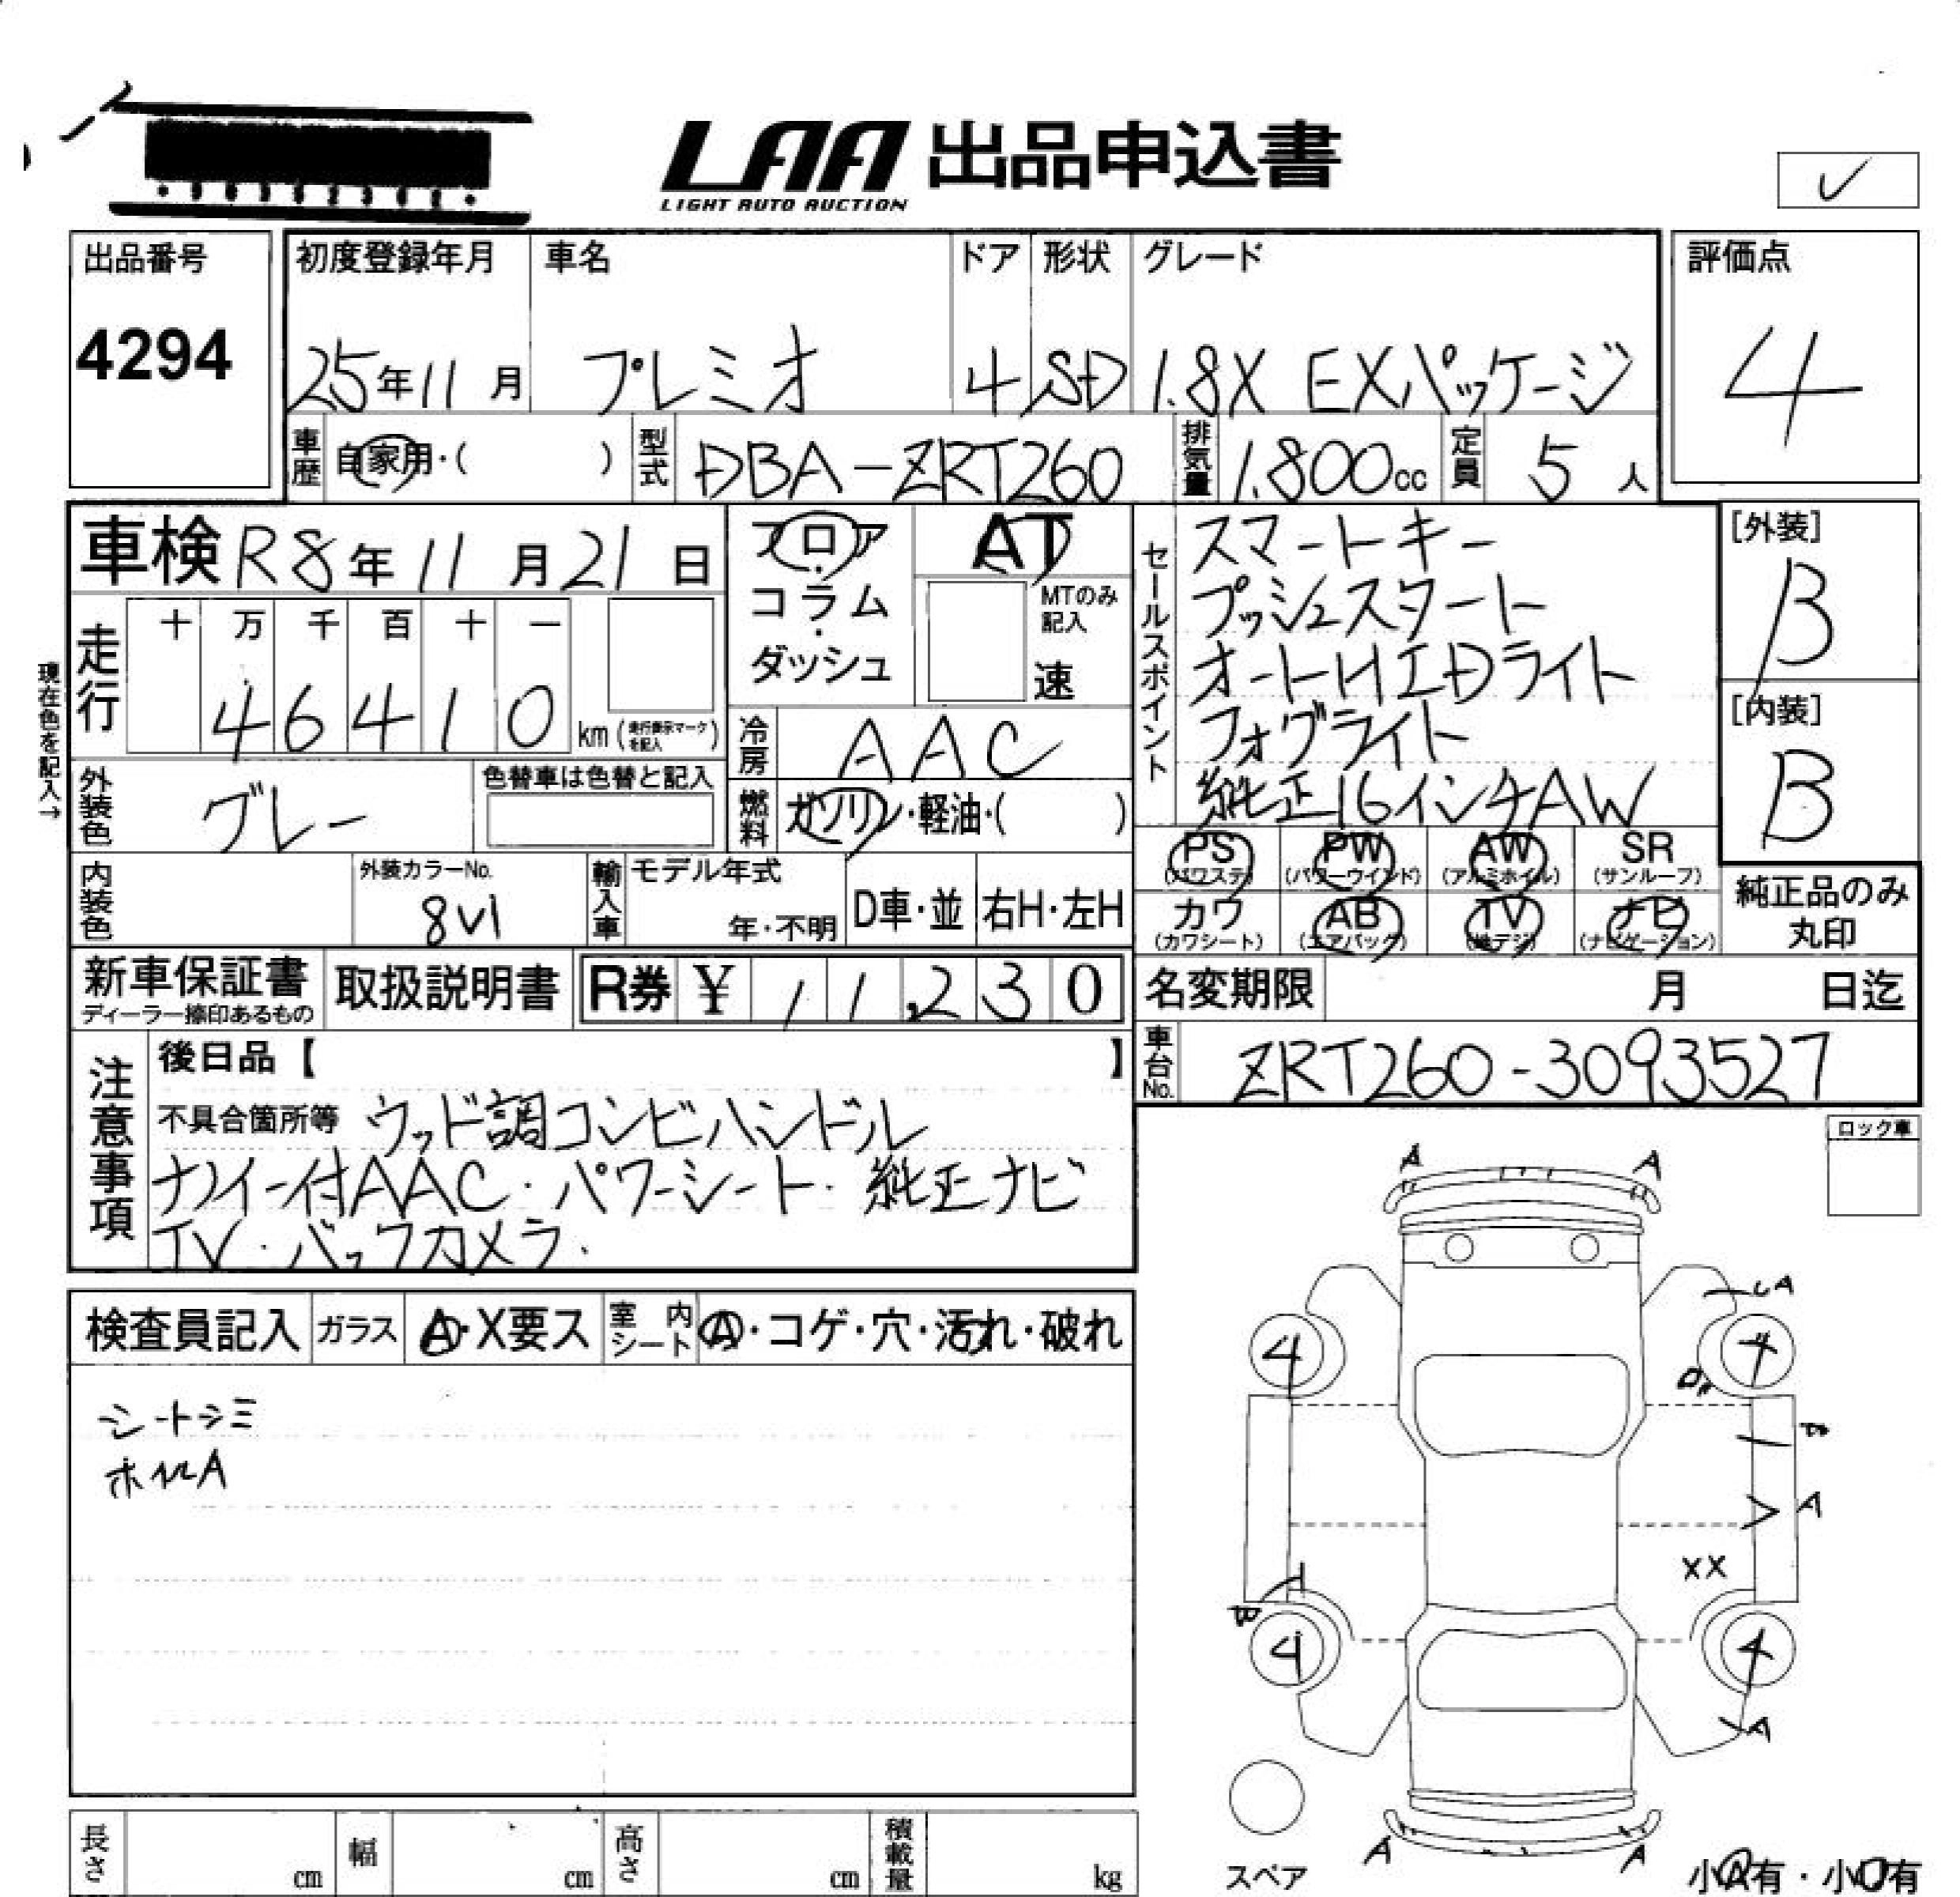 LAA 出品申込書
LIGHT AUTO AUCTION
出品番号
4294
初度登録年月
25年11月
車名
プレミオ
ドア
4
形状
SD
グレード
1.8X EXパッケージ
評価点
4
車歴 自家用・( )
型式 DBA-ZRT260
排気量 1.800cc
定員 5人
車検 R8年11月21日
フロア・コラム・ダッシュ
AT
MTのみ記入
速
セールスポイント
スマートキー
プッシュスタート
オートHIDライト
フォグライト
純正16インチAW
[外装]
B
[内装]
B
現在色を記入→
走行
十 万 千 百 十 一
4 6 4 1 0 km (走行表示マークを記入)
冷房 AAC
外装色 グレー
色替車は色替と記入
燃料 ガソリン・軽油・( )
PS (パワステ)
PW (パワーウインド)
AW (アルミホイル)
SR (サンルーフ)
カワ (カワシート)
AB (エアバック)
TV (地デジ)
ナビ (ナビゲーション)
純正品のみ丸印
内装色
外装カラーNo.
8V1
輸入車
モデル年式
年・不明
D車・並
右H・左H
新車保証書
ディーラー捺印あるもの
取扱説明書
R券 ¥ 11,230
名変期限 月 日迄
車台No. ZRT260-3093527
注意事項
後日品【 】
不具合箇所等 ウッド調コンビハンドル
ナノイー付AAC・パワーシート・純正ナビ
TV・バックカメラ.
ロック車
検査員記入
ガラス A・X要ス
室内シート A・コゲ・穴・汚れ・破れ
シートシミ
ホイルA
A A
A
4 4
A
XX
4 4
A
A A
スペア
小A有・小U有
長さ cm
幅 cm
高さ cm
積載量 kg